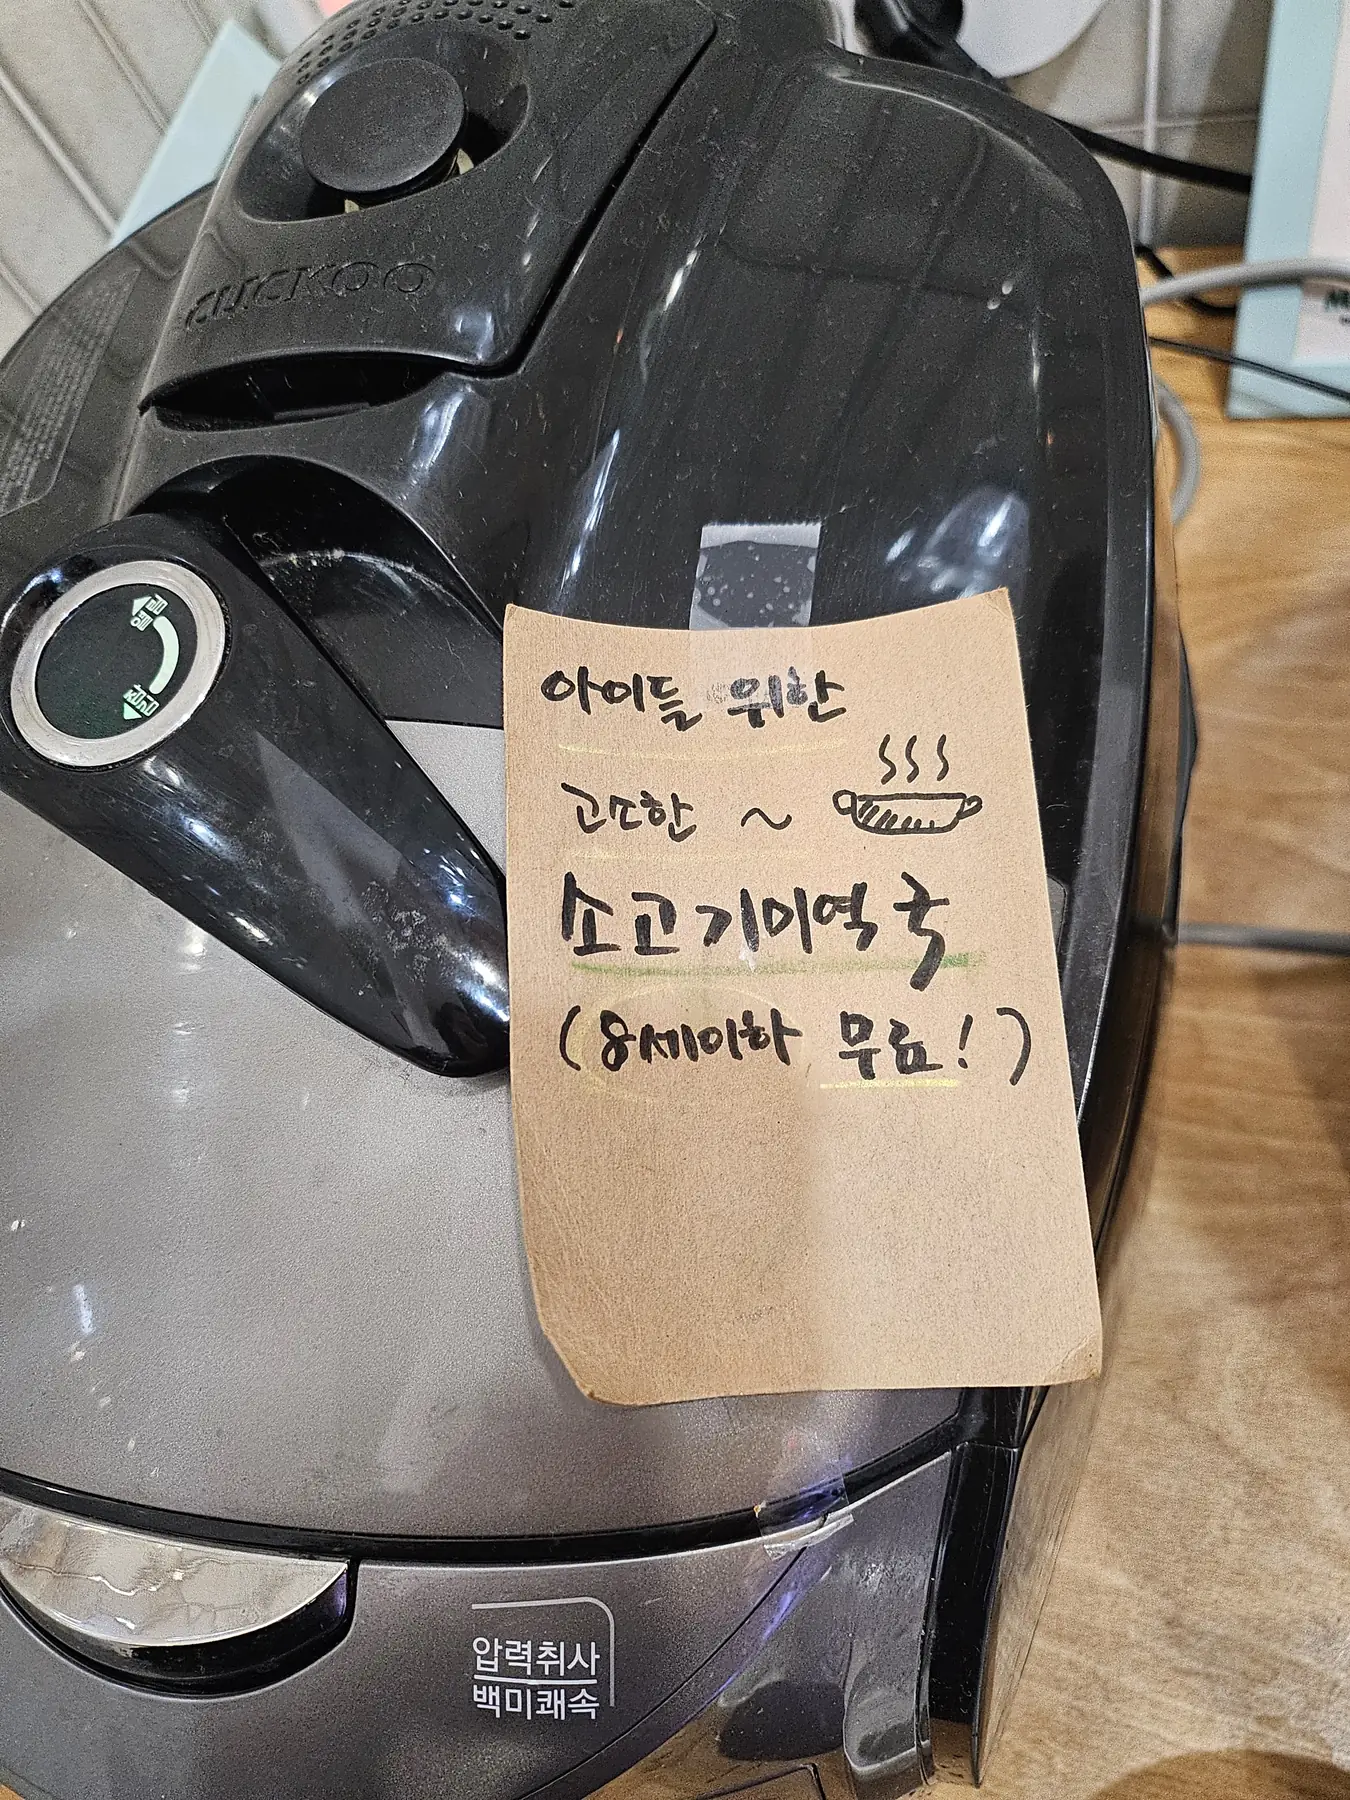 CUCKOO
잠김
취사
아이들 위한
고소한 ~
소고기미역국
(8세이하 무료!)
압력취사
백미쾌속